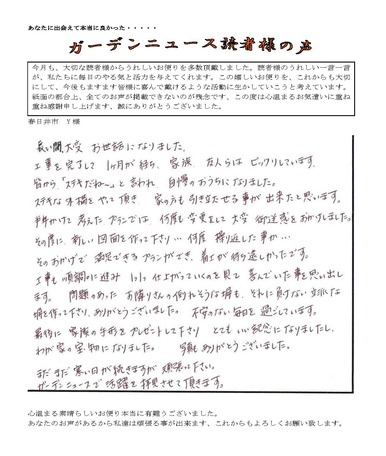 あなたに出会えて本当に良かった・・・・・
ガーデンニュース読者様の声
今月も、大切な読者様からうれしいお便りを多数頂戴しました。読者様のうれしい一言一言
が、私たちに毎日のやる気と活力を与えてくれます。この嬉しいお便りを、これからも大切
にして、今後もますます皆様に喜んで戴けるような活動に生かしていこうと考えています。
紙面の都合上、全てのお声が掲載できないのが残念です、この度は心温まるお気遣いに重ね
重ね感謝申し上げます、誠にありがとうございました。
春日井市 Y様
長い間 大変 お世話になりました。
工事を完了して 1ヶ月が経ち、家族 友人らは ビックリしています。
皆から、「ステキだね〜」と 言われ 自慢のおうちになりました。
ステキな 外構を やって頂き 家の方も 引き立たせる事が 出来たと思います。
半年かけて 考えた プランでは 何度も 変更をして 大変 御迷惑を おかけしました。
その度に、新しい 図面を 作って下さり… 何度 繰り返した事か…
そのおかげで 満足できる プランができ、着工が待ち遠しかったです。
工事も 順調に進み 1つ1つ 仕上がっていくのを 見て 喜んでいた事を思い出し
ます。 問題のあった お隣りさんの倒れそうな塀も、それに負けない 立派な
塀を作って下さり、ありがとうございました。 不安のない毎日を 過ごしています。
最後に 家族の手形を プレゼントして下さり とても いい記念になりましたし、
わが家の宝物になりました。 ありがとうございました。
まだまだ 寒い日が 続きますが 頑張って下さい。
ガーデンニュースで 活躍を 拝見させて頂きます。
心温まる素晴らしいお便り本当に有難うございました。
あなたのお声があるから私達は頑張る事が出来ます、これからもよろしくお願い致します。